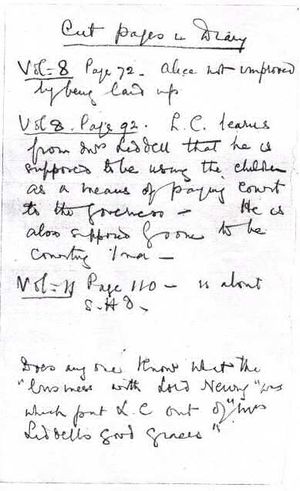 Cut pages in Diary
Vol: 8 Page 72. Alice not improved
by being laid up
Vol 8. Page 92. L.C. learns
from Mrs Liddell that he is
supposed to be using the children
as a means of paying court
to the governess – He is
also supposed to be
courting Ina –
Vol: 11 Page 110 – is about
S.H.D.
Does any one know what the
"business with Lord Newry" was
which put L.C out of "Mrs
Liddell's good graces"